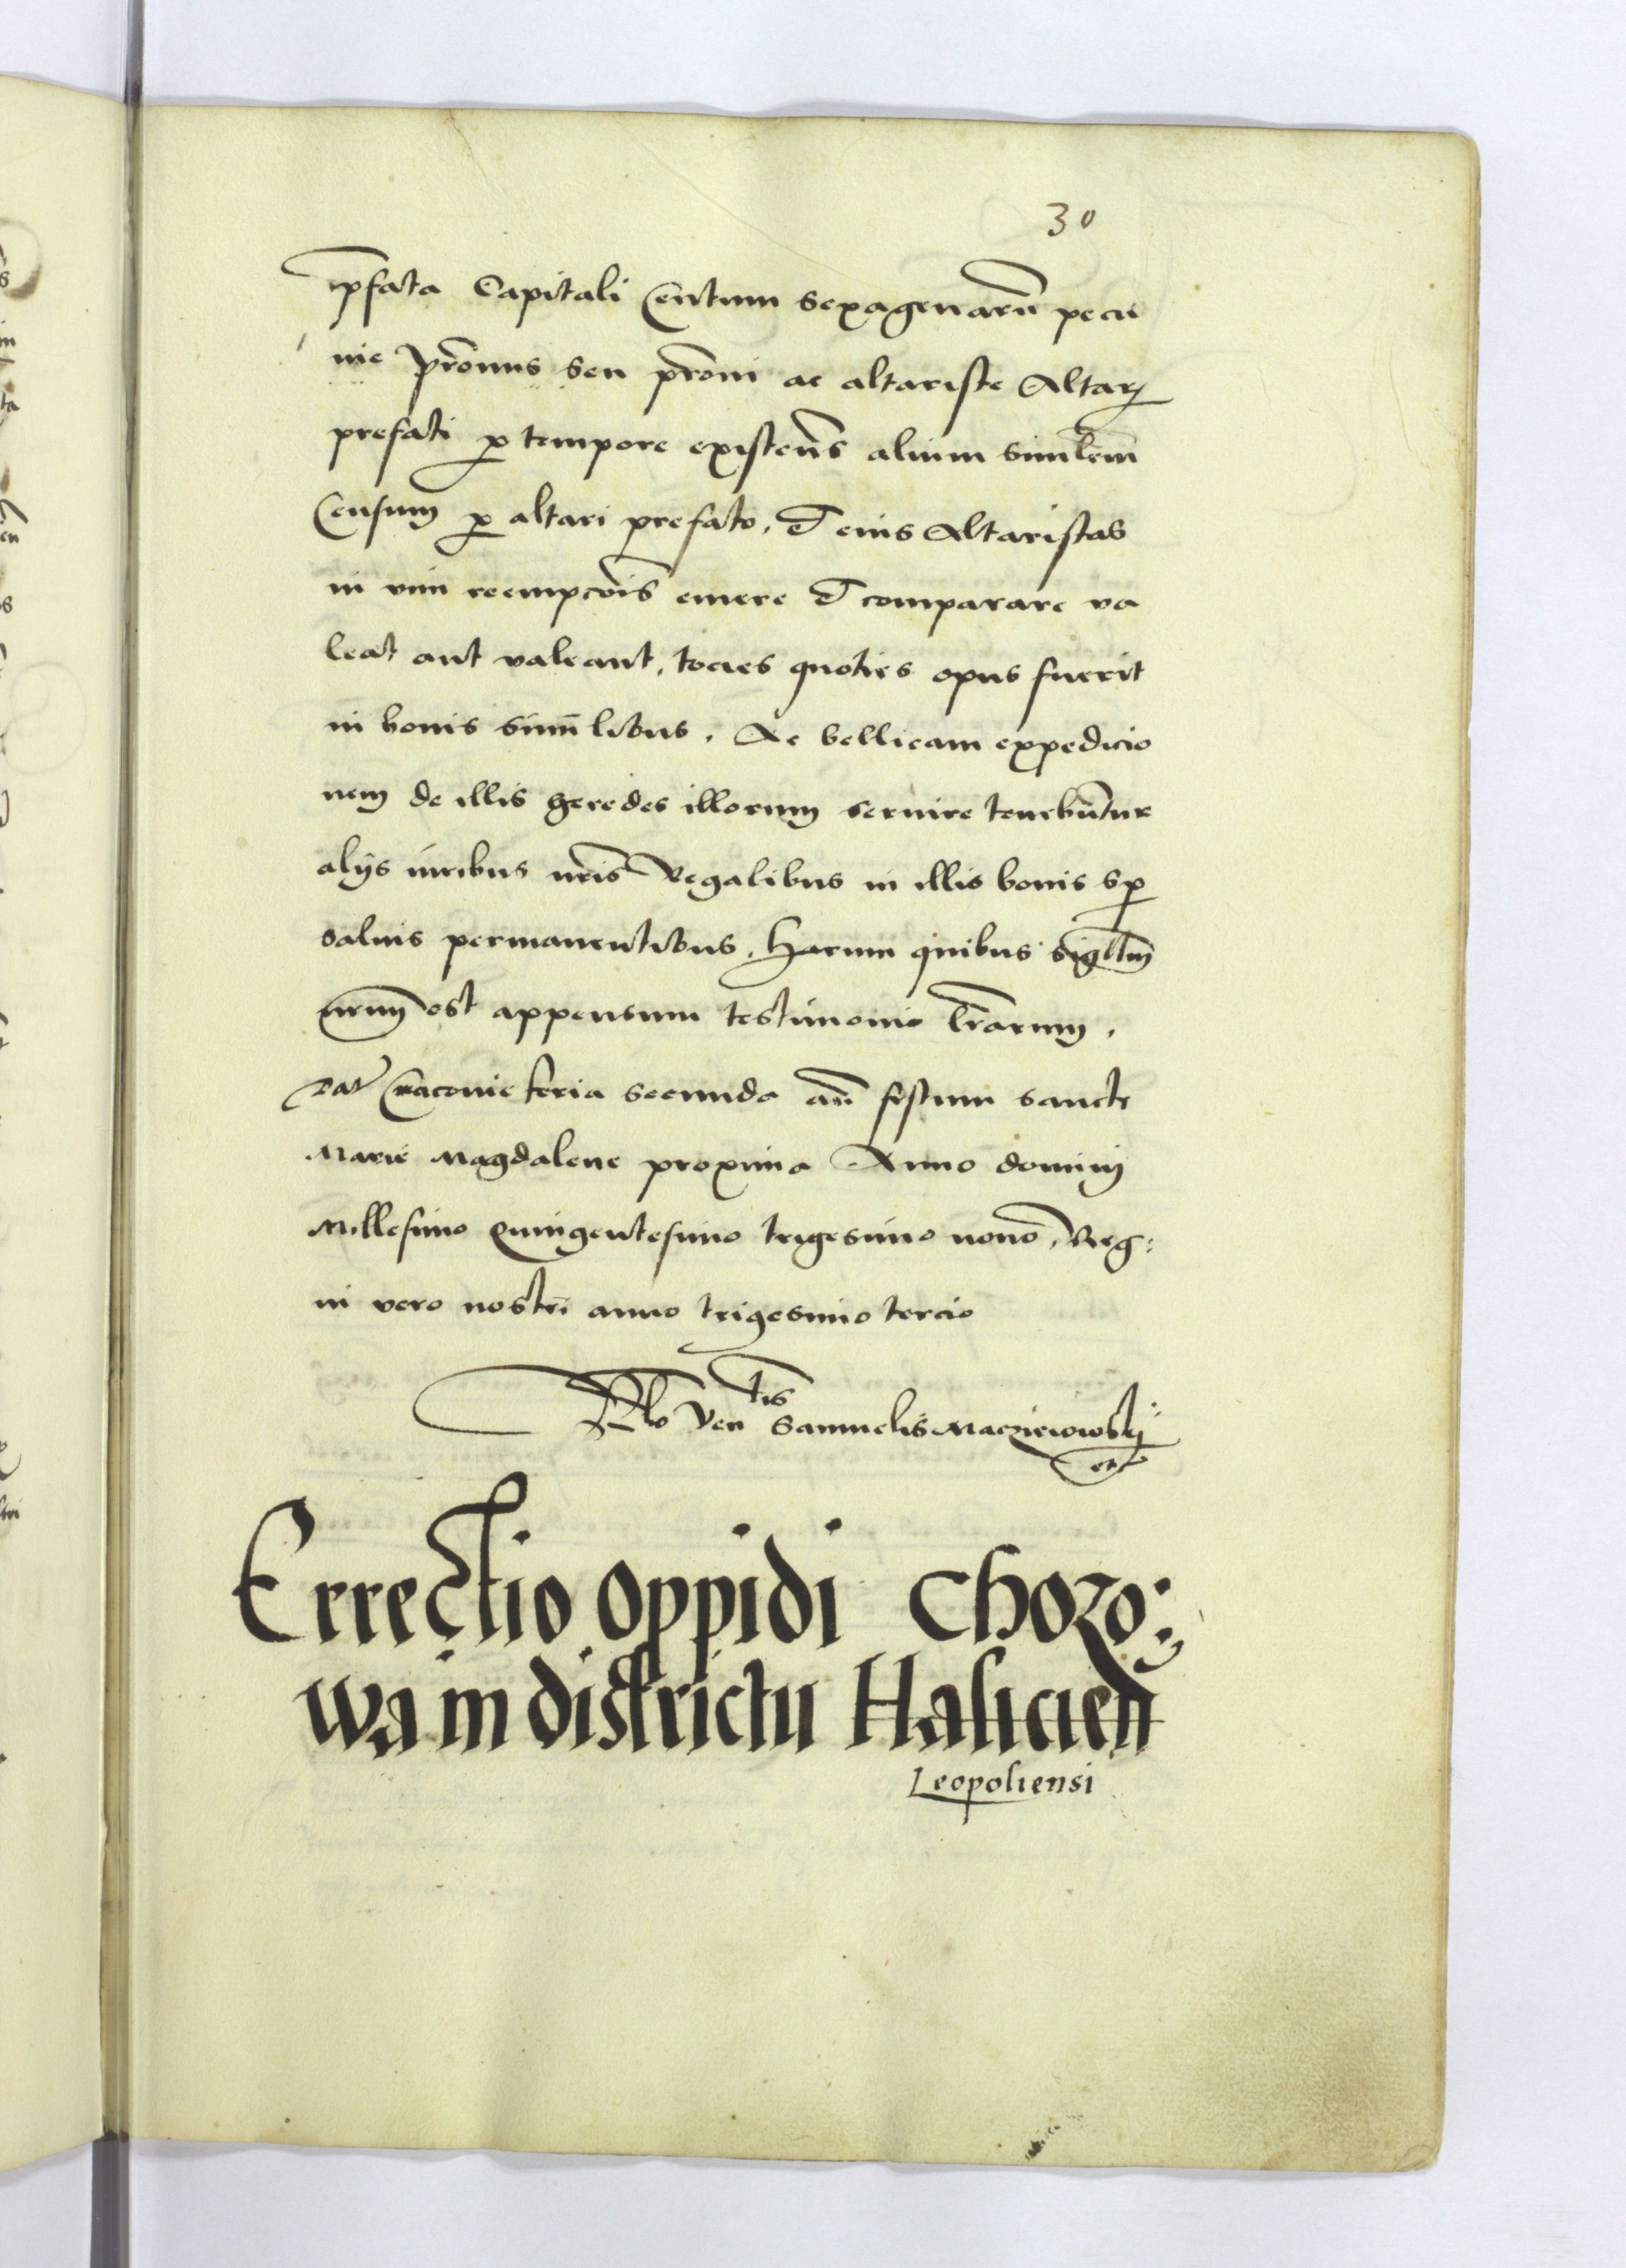 30
p̄fata Capitali Centum sexagenarū pecu
nie Pr̄onus seu pr̄oni ac altariste Altarȷ
prefati ꝓ tempore existen̄s alium similem̄
Censum ꝓ altari prefato, et eius Altaristas
in vim reempcōis emere et comparare va
leat aut valeant, tocies quoties opus fuerit
in bonis similibus. Ac bellicam expedicio
nem de illis heredes illorum seruire tenebūtur
alijs iuribus nr̄is Regalibus in illis bonis sꝑ
saluis permanentibus, Harum quibus sigillm̄
nrm̄ est appensum testimonio lr̄arum.
Dat̄ Cracouie feria secunda an̄ festum sancte
Marie Magdalene proxima Anno domini
Millesimo Quingentesimo trigesimo nono, Reg:
ni vero nostri anno trigesimo tercio
Rlo Ven tis Samuelis Macziejowskij
etc
Errectio oppidi Choro:
wa in districtu Halicien̄
Leopoliensi